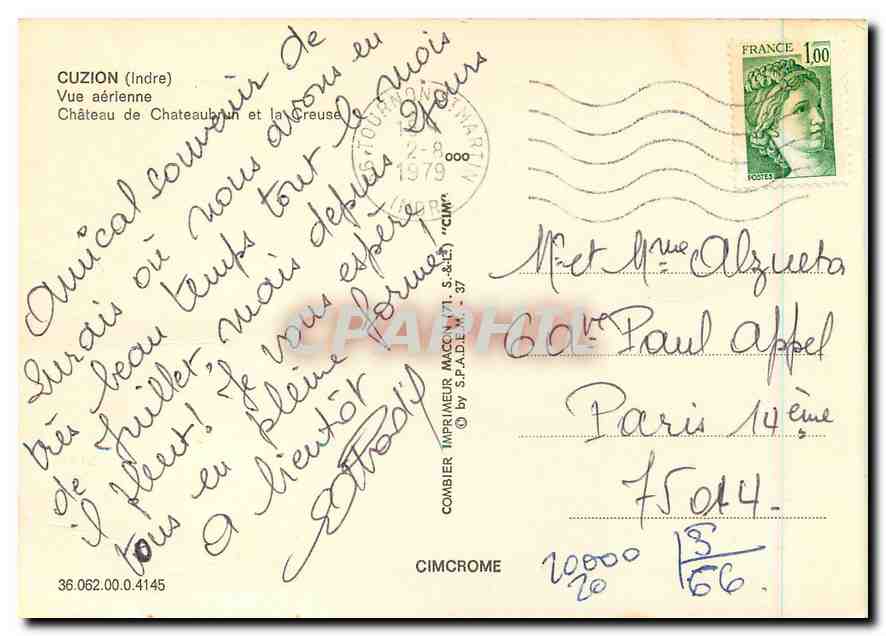 CUZION (Indre)
Vue aérienne
Château de Chateaubrun et la Creuse
Amical souvenir de
Lurais où nous avons eu
très beau temps tout le mois
de Juillet, mais depuis 2 jours
il pleut! Je vous espère
tous en pleine forme,
a bientôt
36 TOURNON ST MARTIN
2-8
1979
INDRE
FRANCE 1,00
POSTES
Mr et Mme Alzueta
60 Ave Paul Appel
Paris 14ème
75014.
COMBIER IMPRIMEUR MACON (71. S.-&-L.) "CIM"
© by S.P.A.D.E.M. - 37
CPAPHIL
CIMCROME
36.062.00.0.4145
20000
20
66.